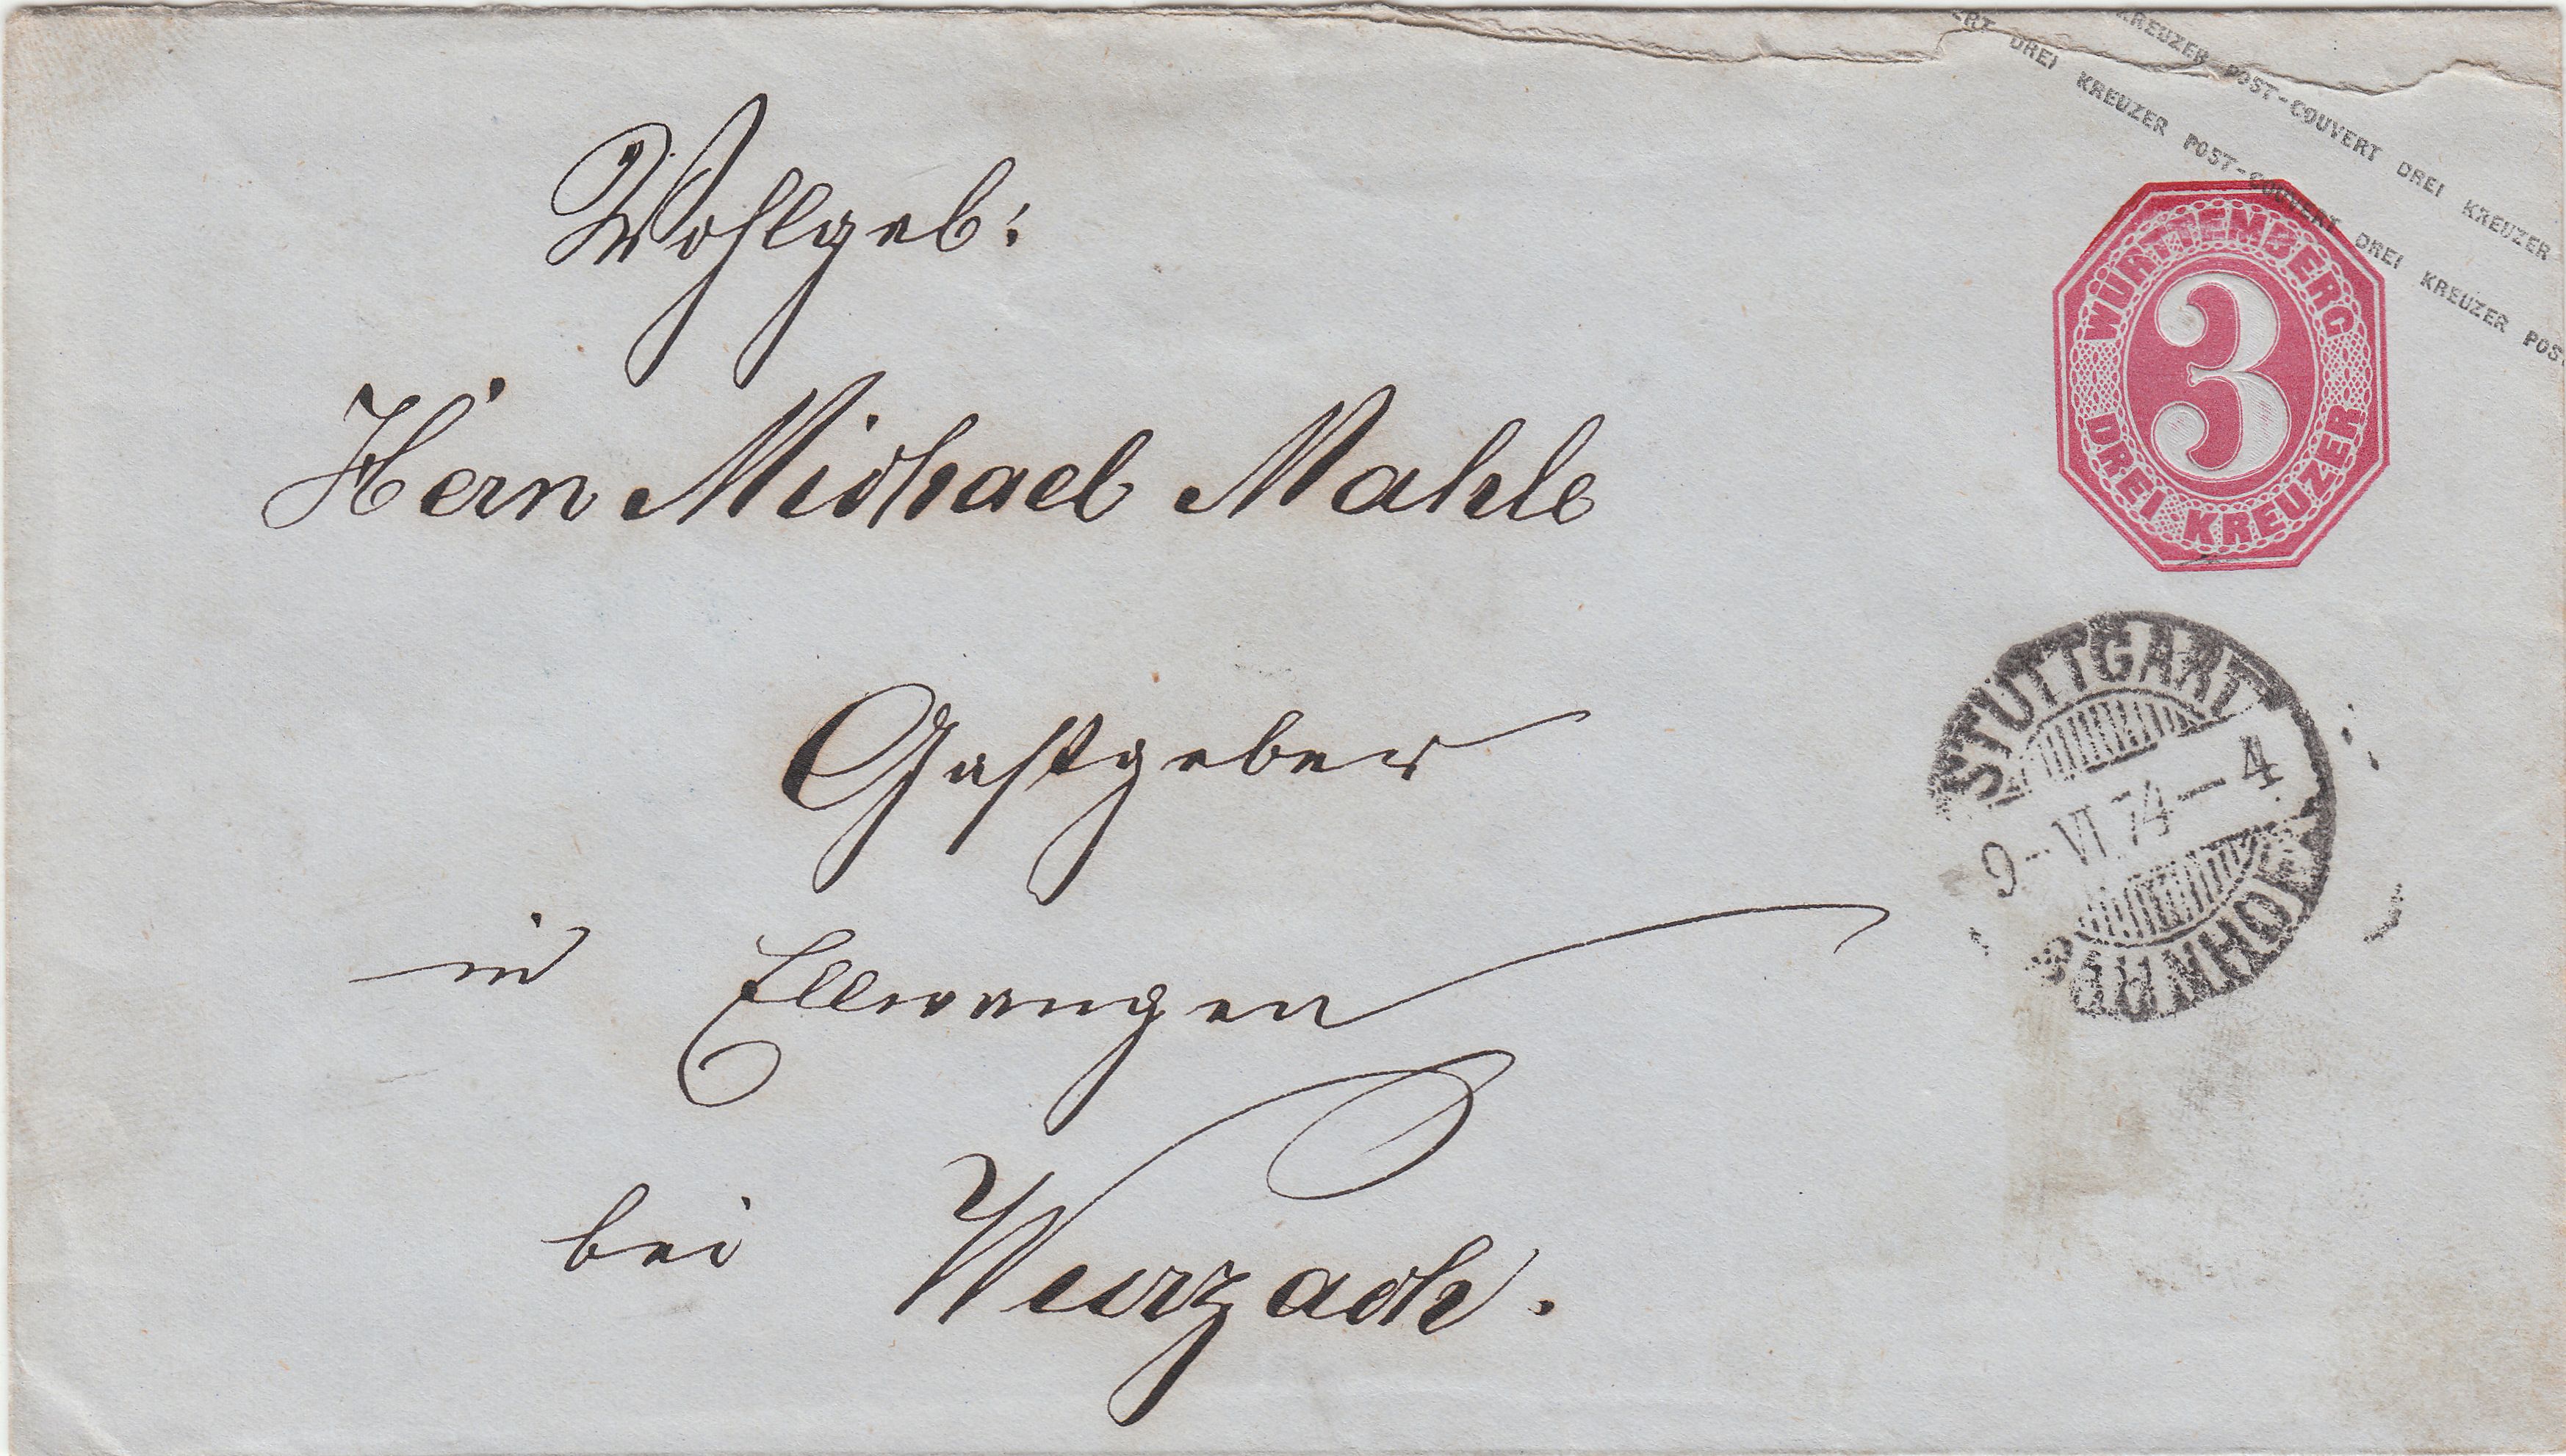 ERT DREI KREUZER POST-COUVERT DREI KREUZER POS
KREUZER POST-COUVERT DREI KREUZER
WÜRTTEMBERG
3
DREI KREUZER
Wohlgeb:
Hern̄ Michael Mahle
Gastgeber
in Ellwangen
bei Wurzach.
STUTTGART
9-VI.74-4
BAHNHOF